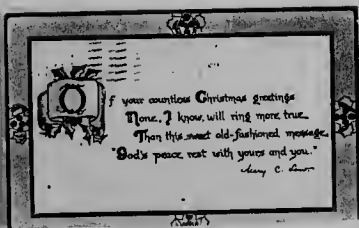 Of your countless Christmas greetings
None, I know, will ring more true
Than this sweet old-fashioned message,
"God's peace rest with yours and you."
C.